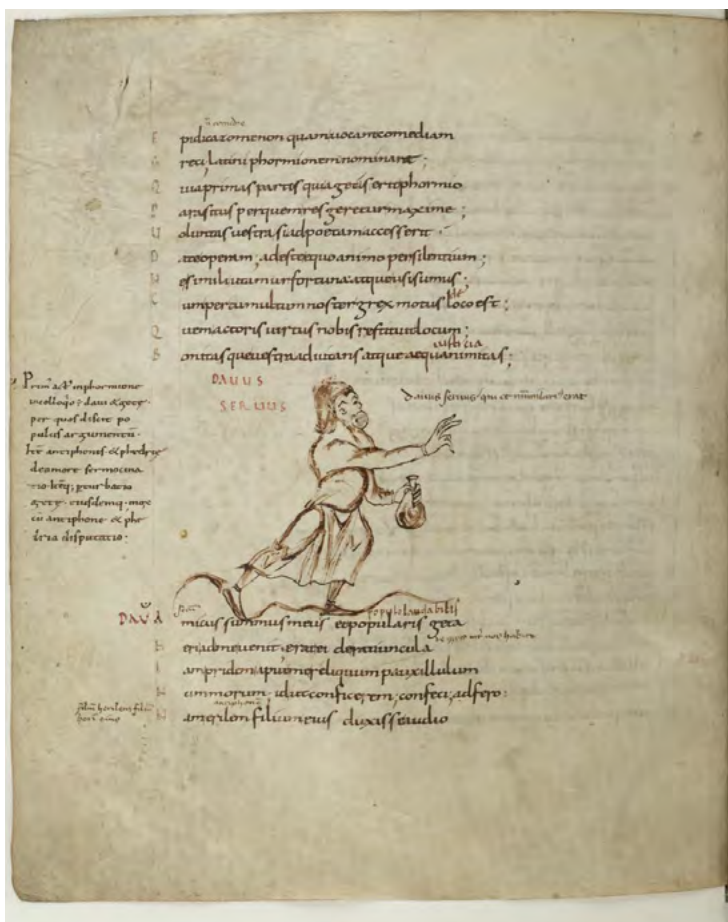 E pidicazomenon quam uocant comediam
G reci, latini phormionem nominant;
Q uia primas partis qui aget is erit phormio
P arasitus per quem res geretur maxime;
U oluntas uestra si ad poetam accesserit
D ate operam; adeste equo animo per silentium;
N e simili utamur fortuna atque usi sumus;
C um per tumultum noster grex motus loco est;
Q uem actoris uirtus nobis restituit locum;
iusticia
B onitasque uestra adiutans atque aequanimitas;
DAUUS
SERUUS
Dauus seruus qui et erat
in phormione
per quos discit po
pulus argumentū.
antiphonis & phedrie
de amore sermocina
tio
getę. eiusdemq. mox
cū antiphone & phe
dria disputatio.
populo laudabilis
DAVĀ A micus summus meus et popularis geta
H eri ad me uenit. erat ei de ratiuncula
I am pridem apud me reliquum pauxillulum
N ummorum. id ut conficerem; confeci, adfero:
N am erilem filium eius duxisse audio